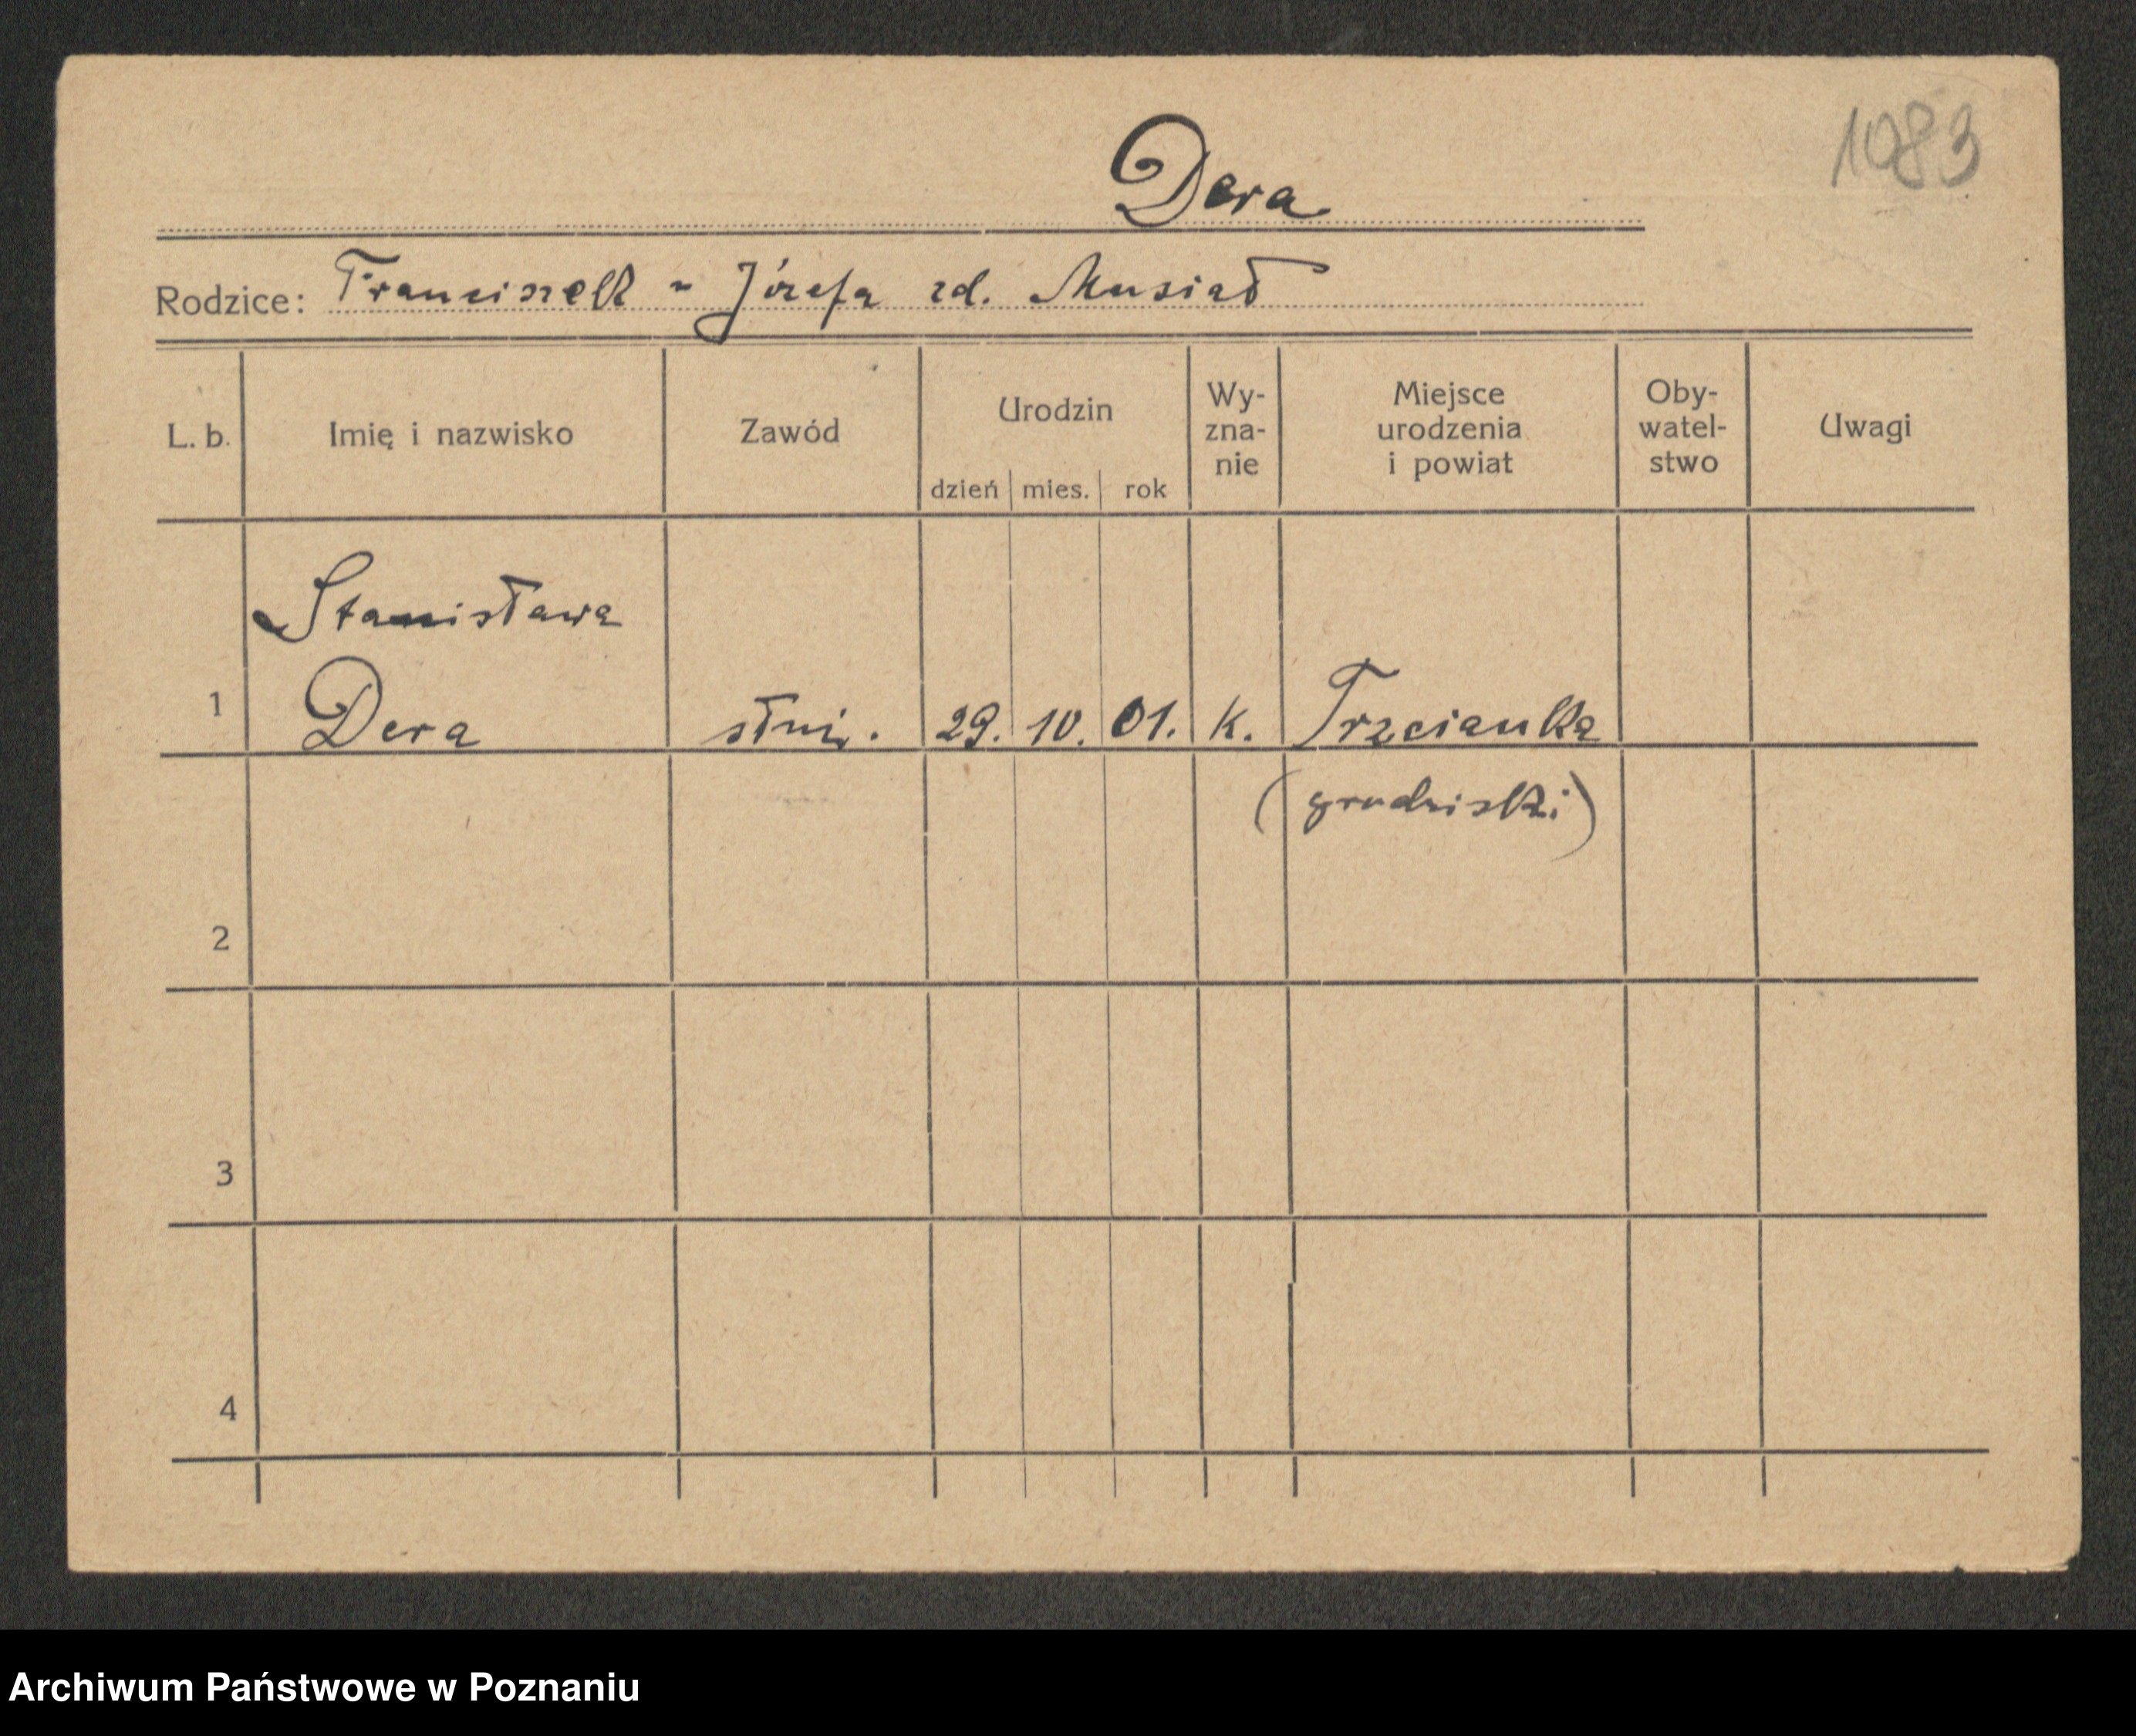 1083
Dera
Rodzice: Franciszek - Józefa zd. Musiał
L. b. Imię i nazwisko Zawód Urodzin dzień mies. rok Wy-zna-nie Miejsce urodzenia i powiat Oby-watel-stwo Uwagi
Stanisława
1 Dera służ. 29. 10. 01. k. Trzcianka
(grodziski)
2
3
4
Archiwum Państwowe w Poznaniu